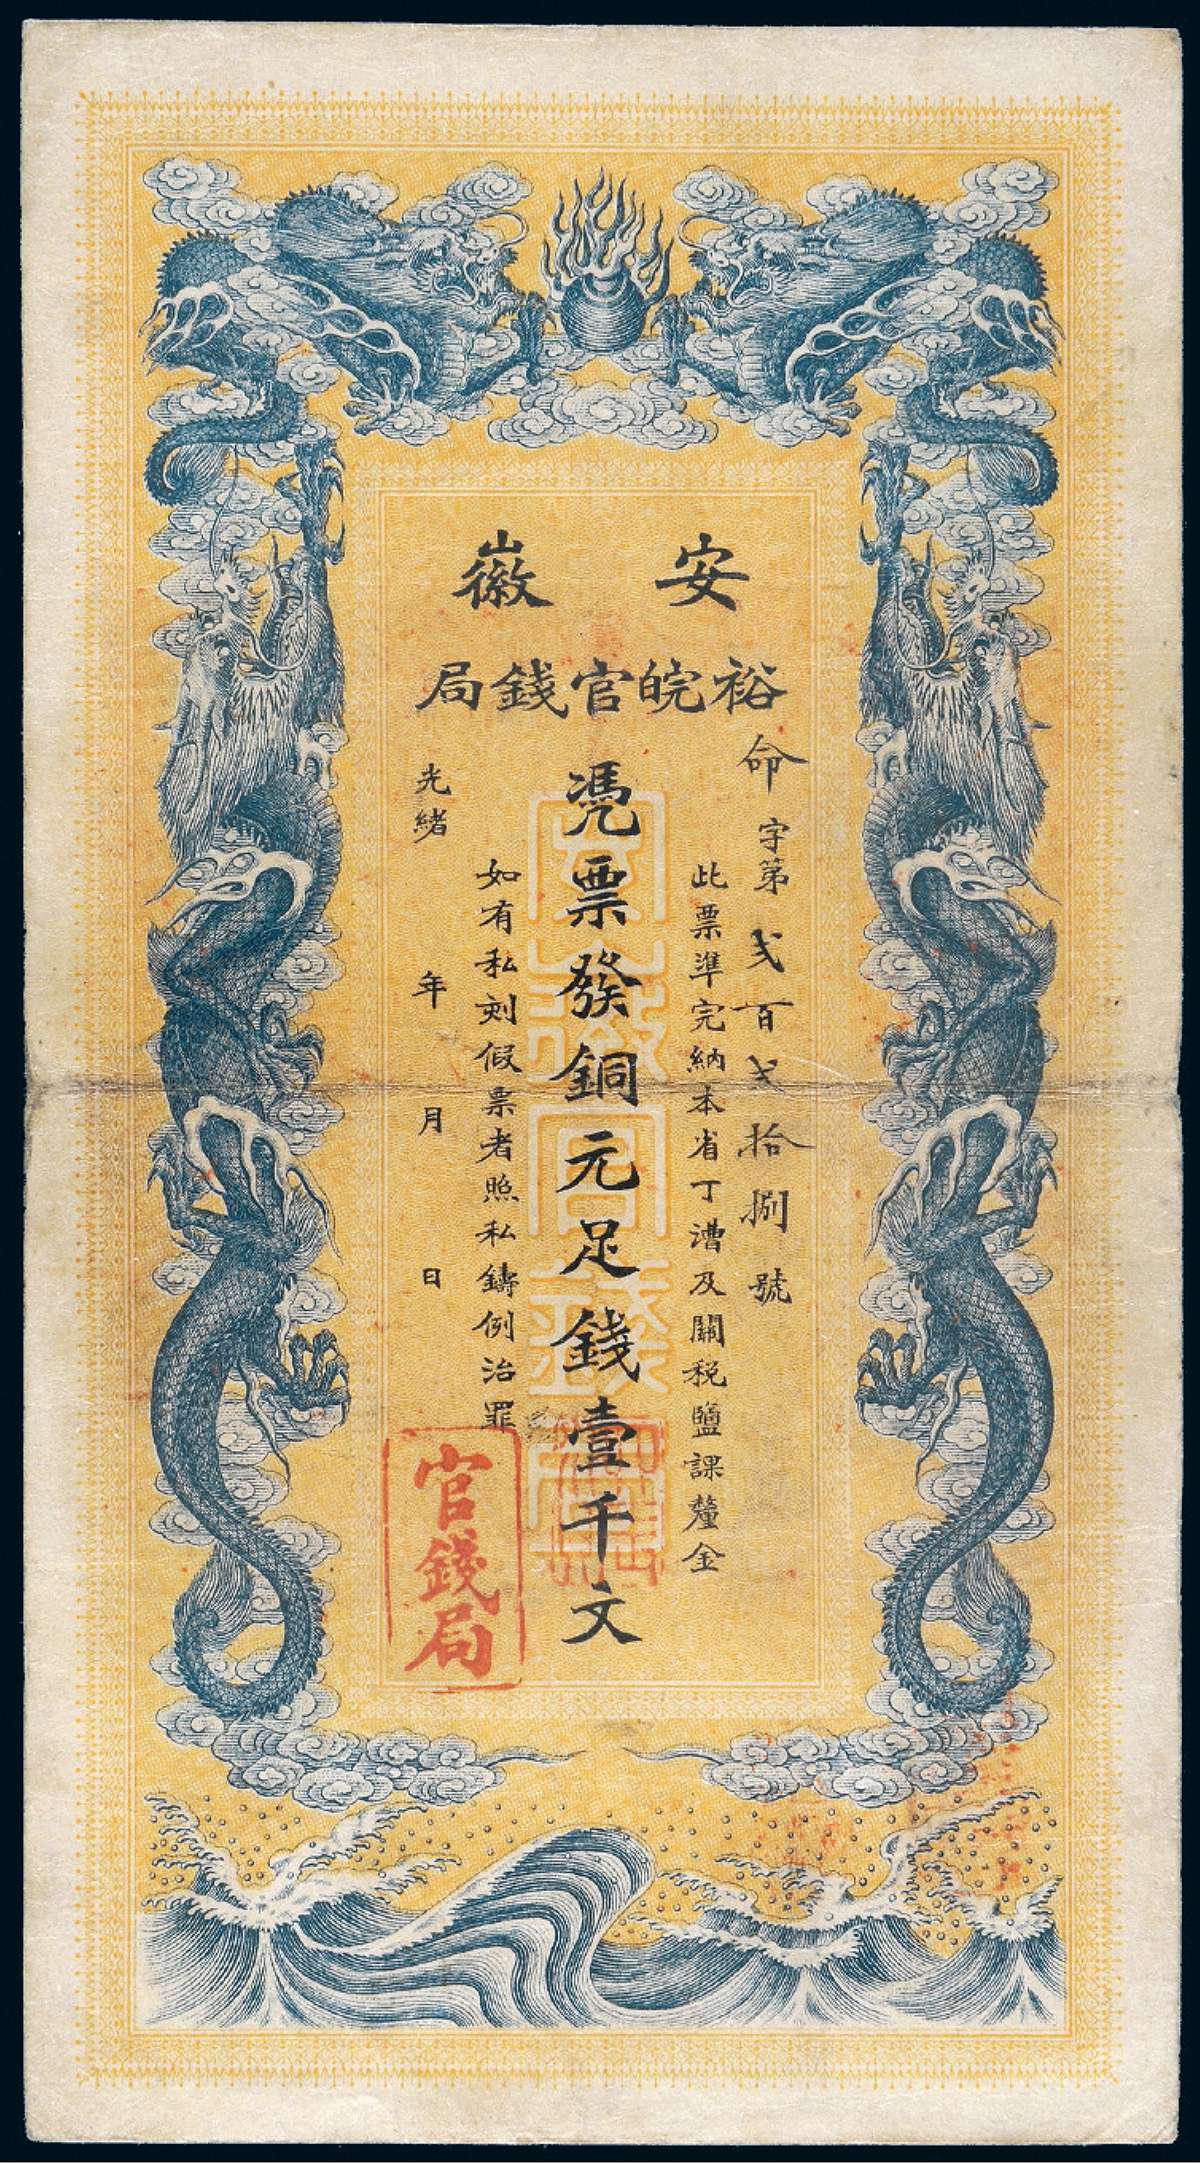 安徽
裕皖官錢局
命字第貳百弍拾捌號
此票準完納本省丁漕及關税鹽課釐金
憑票發銅元足錢壹千文
如有私刻假票者照私鑄例治罪
光緒 年 月 日
官錢局
安徽官錢局